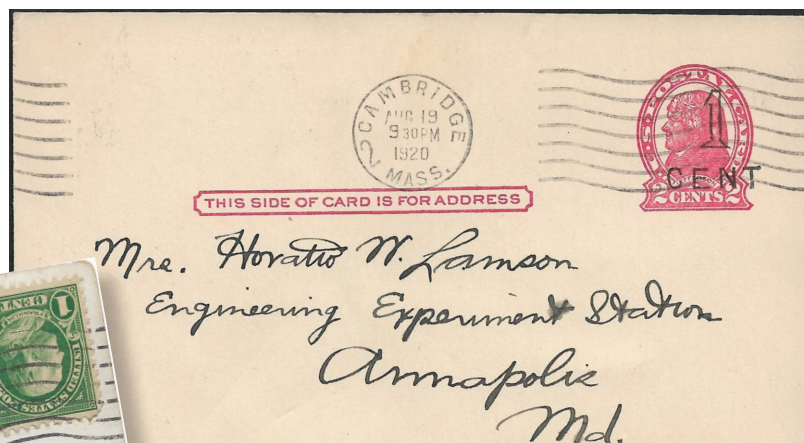 CAMBRIDGE
AUG 19
9 30PM
1920
2 MASS.
U.S. POSTAL CARD
1
CENT
2 CENTS 2
THIS SIDE OF CARD IS FOR ADDRESS
Mrs. Horatio W. Lamson
Engineering Experiment Station
Annapolis
Md.
1